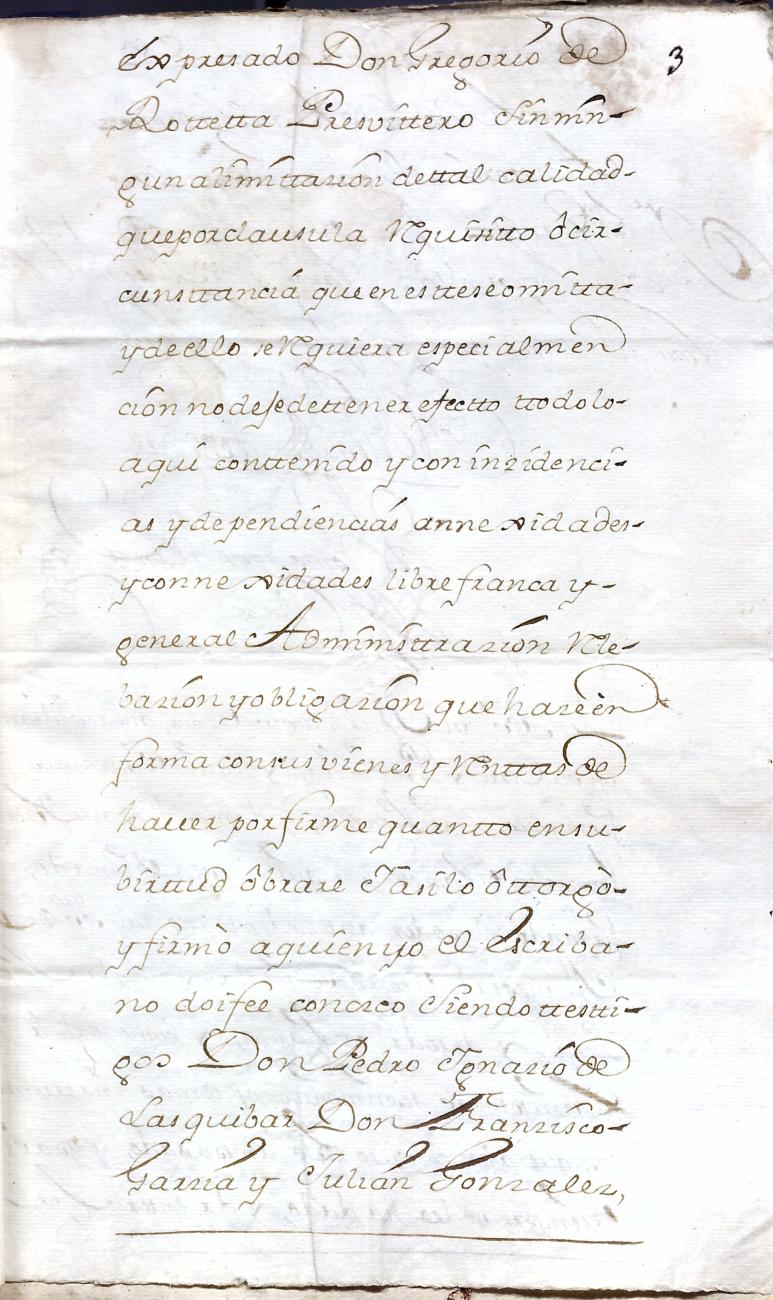 expresado Don Gregorio de
3
Rottetta Presvittero sin nin-
guna limittazion de ttal calidad-
que por clausula Requisitto ô cir-
cunsttancia que en estte se omitta-
y de ello se Requiera especial men
ción no deje de ttener efectto ttodo lo-
aqui conttenido y con inzidenci-
as y dependiencias annexidades-
y connexidades libre franca y-
general Administtrazion Rele-
bazion y obligazion que haze en
forma con sus vienes y Renttas de
hauer por firme quantto en su-
birttud ôbrare Y asi lo ôttorgò-
y firmò a quien yo el Escriba-
no doi fee conozco siendo ttestti-
gos Don Pedro Ygnazio de
Lasquibar Don Franzisco-
Garzia y Julian Gonzalez,